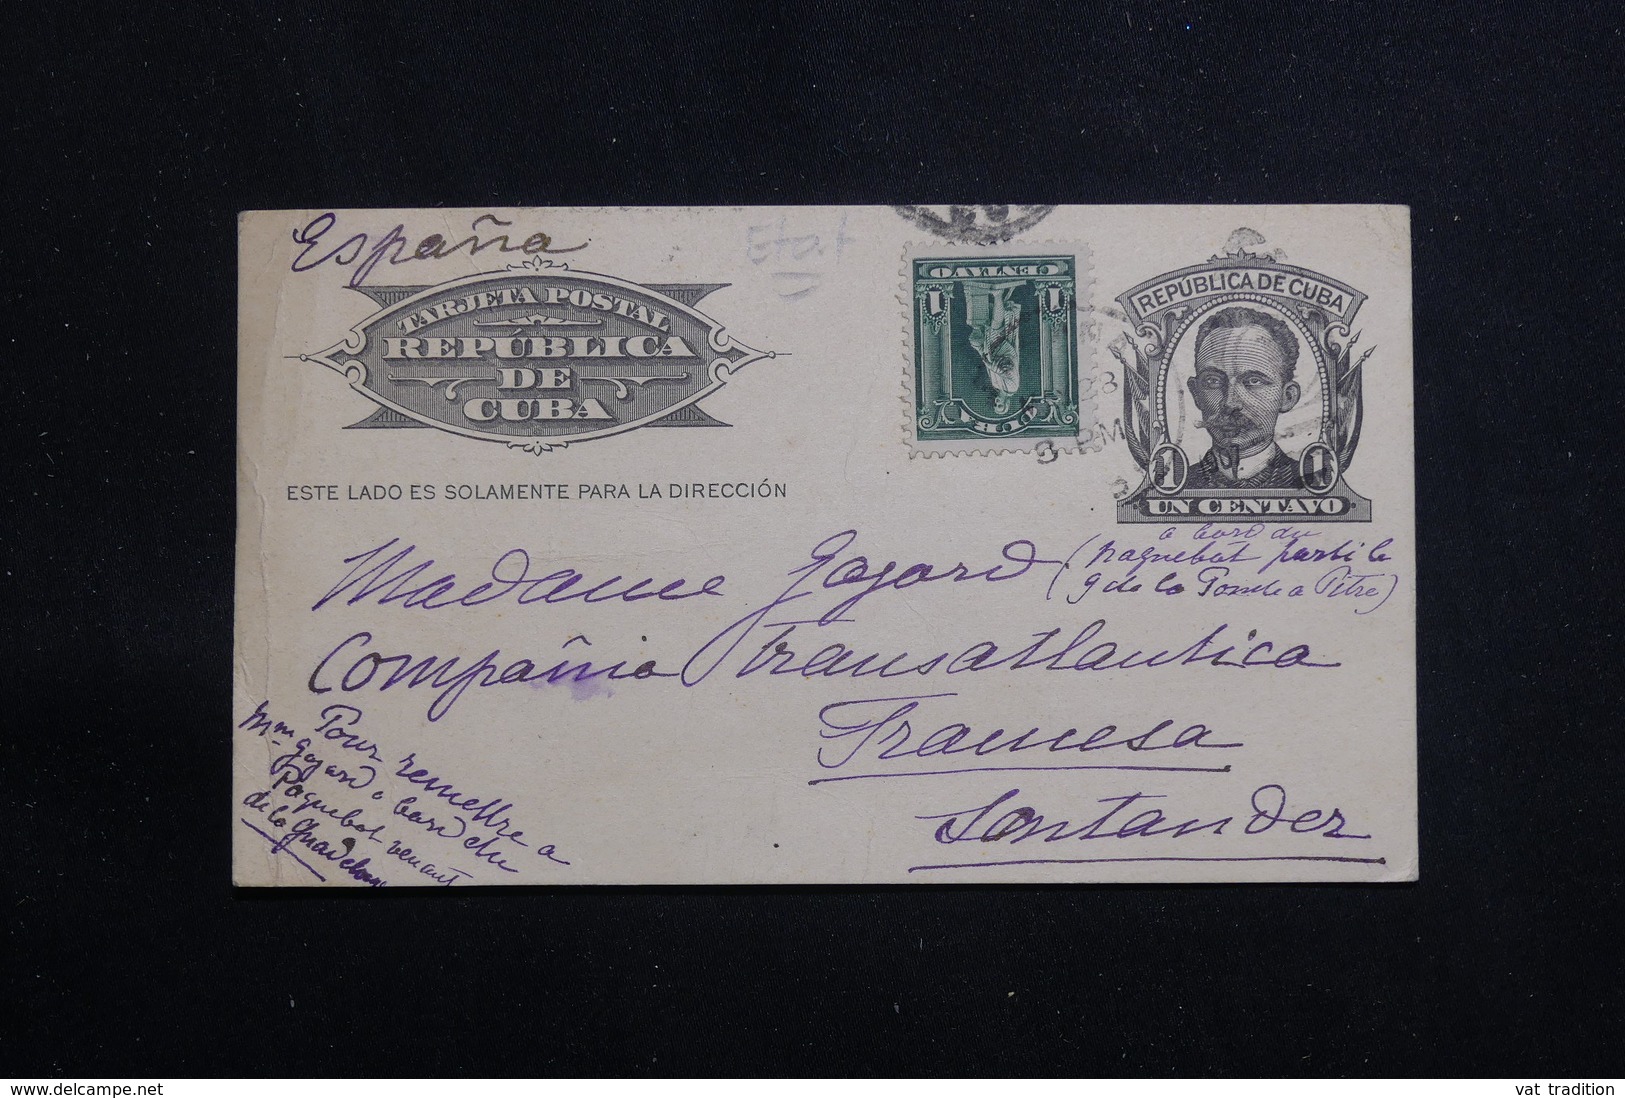 España
Etat
TARJETA POSTAL
REPÚBLICA
DE
CUBA
ESTE LADO ES SOLAMENTE PARA LA DIRECCIÓN
CENTAVO
1 1
CUBA
3 PM
REPUBLICA DE CUBA
1 1
UN CENTAVO
Madame Gajard (a bord du
paquebot parti le
9 de la Pointe a Pitre)
Compañia Transatlantica
Francesa
Santander
Pour remettre a
Mme Gajard a bord du
Paquebot venant
de la Guadeloupe
www.delcampe.net
vat tradition